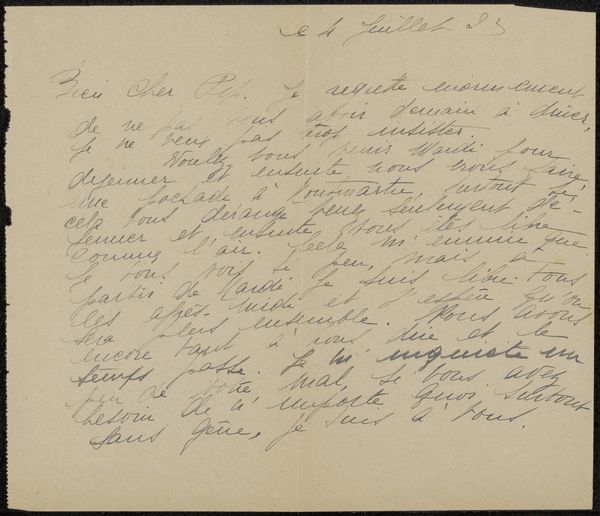 le 4 Juillet 83
Bien Cher Pep. Je regrette énormement
de ne pas vous avoir demain à diner,
je ne veux pas trop insister.
Voulez vous venir Mardi pour
dejeuner et ensuite nous irons faire
une pochade à Montmartre, surtout si
cela vous dérange venez seulement dé-
jeuner et ensuite vous êtes libre
comme l'air. Cela m'ennuie que
je vous vois si peu, mais à
partir de Mardi je suis libre tous
les après-midi et j'espère qu'on
sera plus ensemble. Nous avons
encore tant à nous dire et le
temps passe. Je m'inquiete un
peu de votre mal, si vous avez
besoin de n'importe quoi surtout
sans gêne, je suis à vous.